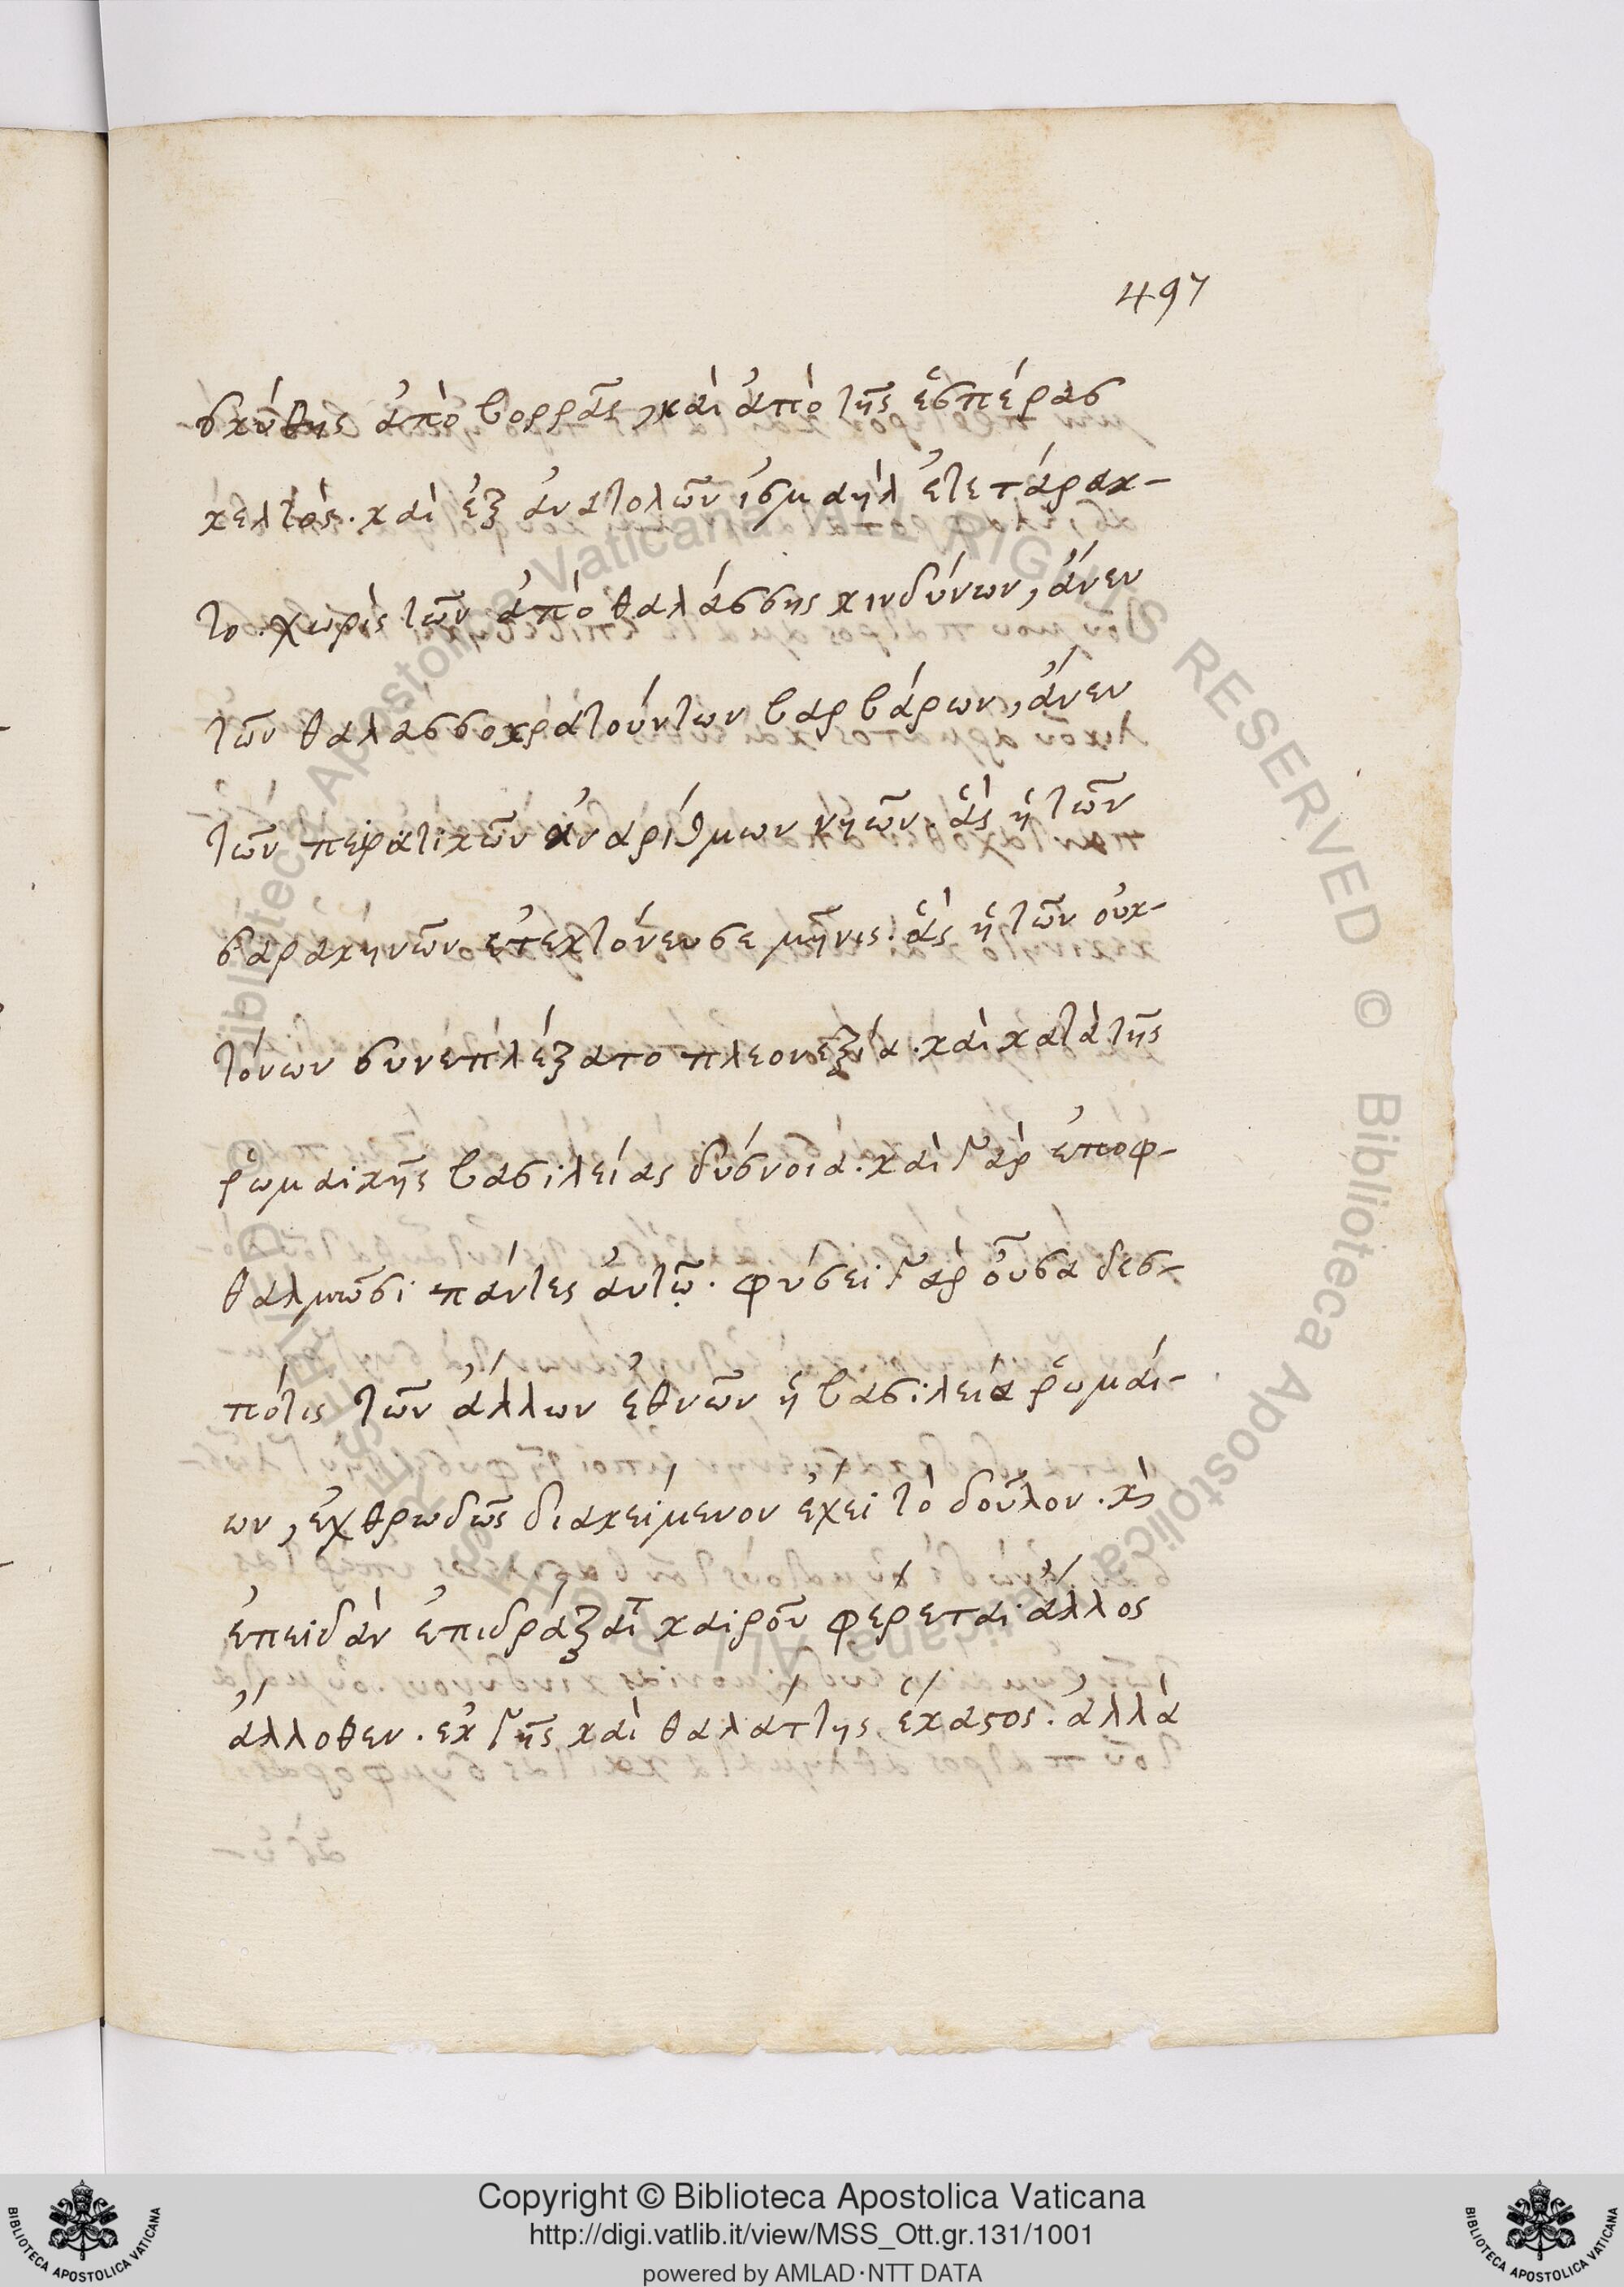 497
σκύθης ἀπὸ βορρᾶς, καὶ ἀπὸ τῆς ἑσπέρας
κελτὸς. καὶ ἐξ ἀνατολῶν ἰσμαὴλ ἐτετάρακ-
το. χωρὶς τῶν ἀπὸ θαλάσσης κινδύνων, ἄνευ
τῶν θαλασσοκρατούντων βαρβάρων, ἄνευ
τῶν πειρατικῶν ἀναρίθμων νηῶν. ἃς ἡ τῶν
σαρακηνῶν ἐτεκτόνευσε μῆνις. ἃς ἡ τῶν οὐκ-
τόνων συνεπλέξατο πλεονεξία. καὶ κατὰ τῆς
ῥωμαικῆς βασιλείας δύσνοια. καὶ γὰρ ἐποφ-
θαλμιῶσι πάντες ἀυτῷ. φύσει γὰρ οὖσα δεσ-
πότις τῶν ἄλλων ἐθνῶν ἡ βασιλεία ῥωμαί-
ων, ἐχθρωδῶς διακείμενον ἔχει τὸ δοῦλον. κὶ
ἐπειδὰν ἐπιδράξαιτ καιροῦ φέρεται ἄλλος
ἄλλοθεν. ἐκ γῆς καὶ θαλάττης ἕκαστος. ἀλλὰ
Copyright © Biblioteca Apostolica Vaticana
http://digi.vatlib.it/view/MSS_Ott.gr.131/1001
powered by AMLAD·NTT DATA
BIBLIOTECA APOSTOLICA VATICANA
BIBLIOTECA APOSTOLICA VATICANA